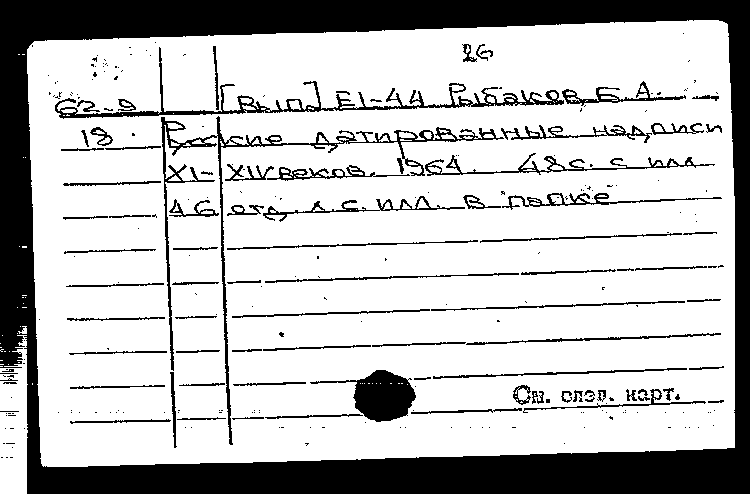 26
62-9 [Вып.] Е1-44 Рыбаков Б.А.
18. Русские датированные надписи
XI-XIV веков. 1964. 48 с. с илл
46 отд. л. с. илл. в папке
См. след. карт.